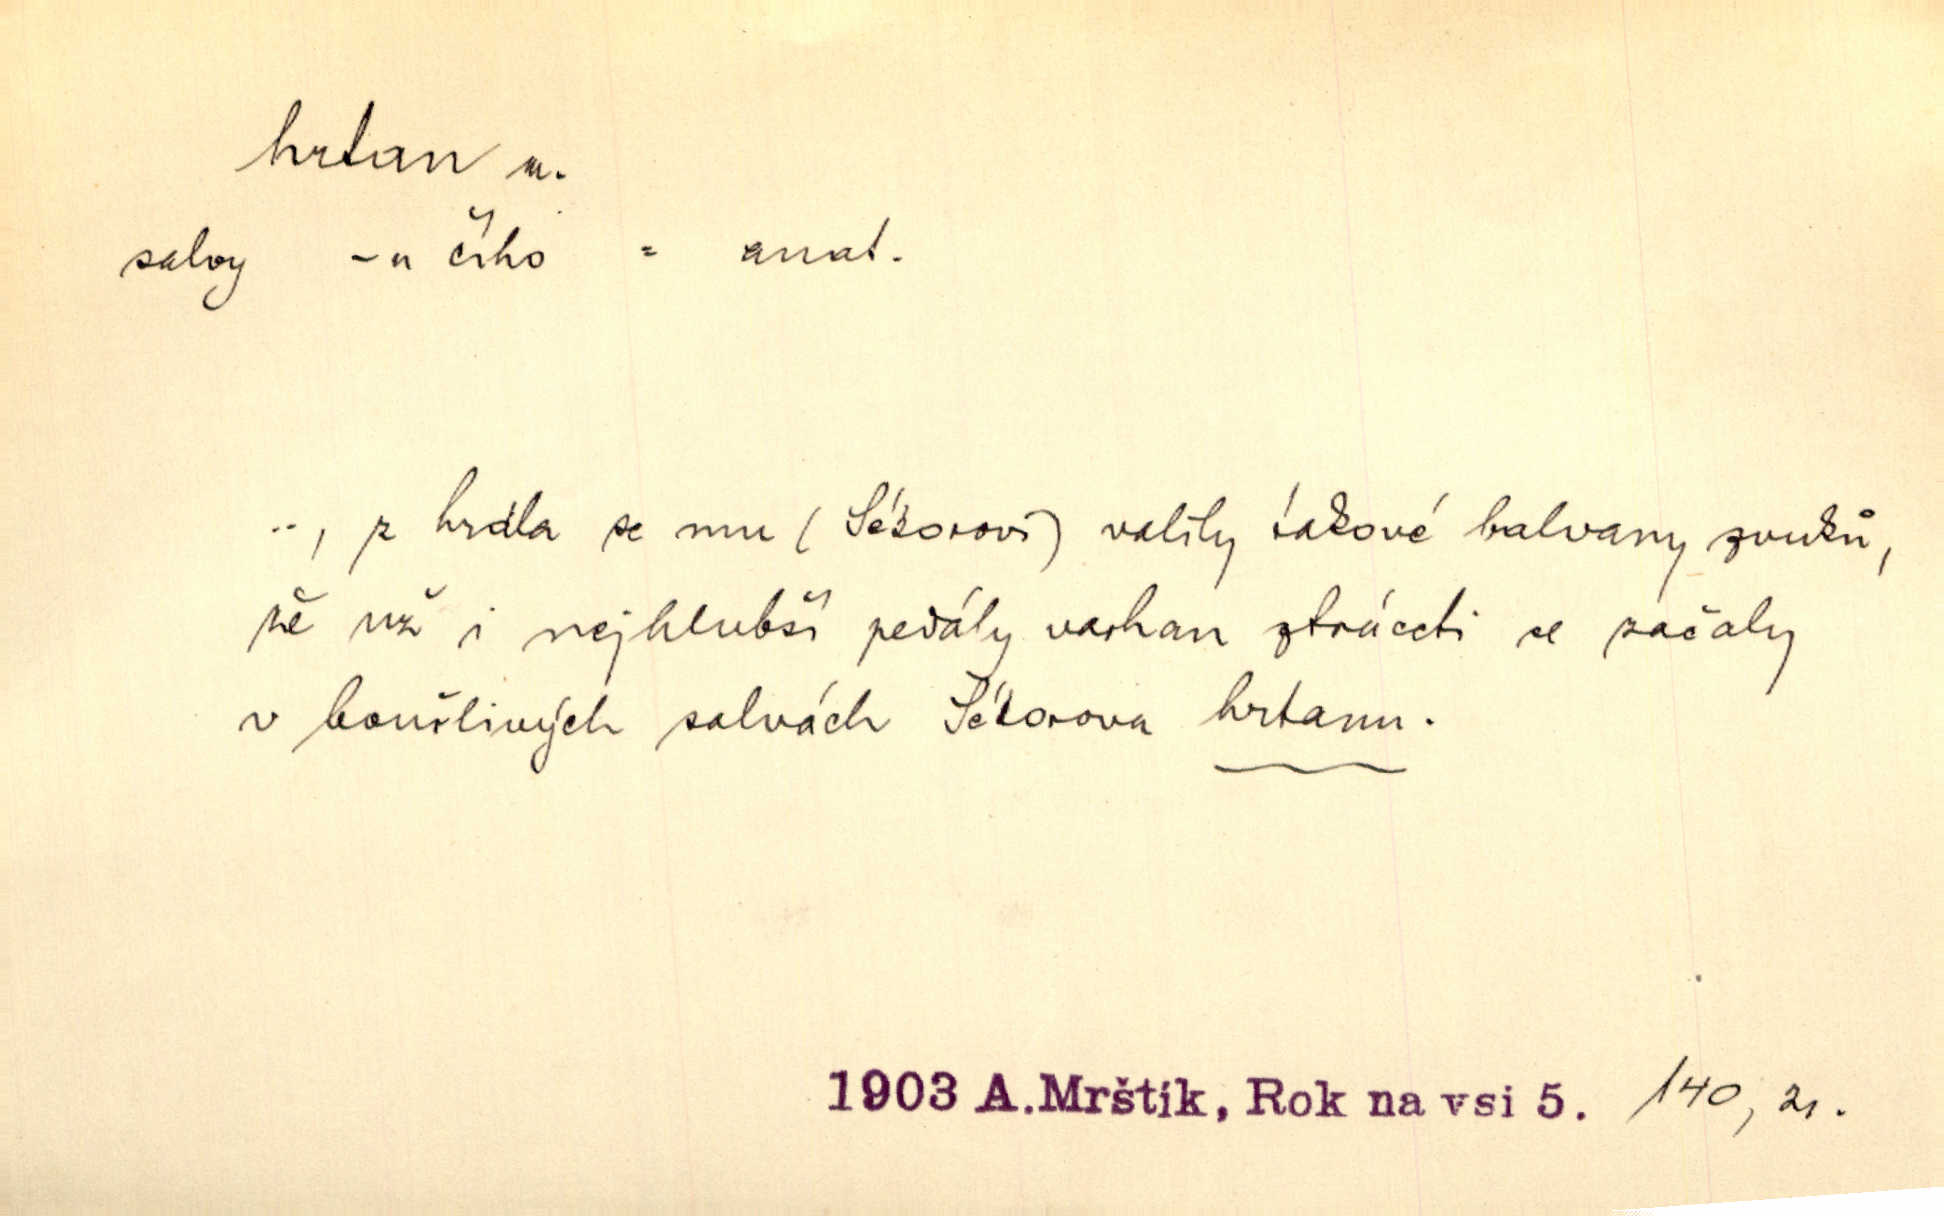 hrtan m.
salvy -u čího = anat.
.., z hrdla se mu (Sékorovi) valily takové balvany zvuků,
že už i nejhlubší pedály varhan ztráceti se začaly
v bouřlivých salvách Sékorova hrtanu.
1903 A.Mrštík, Rok na vsi 5. 140, 21.